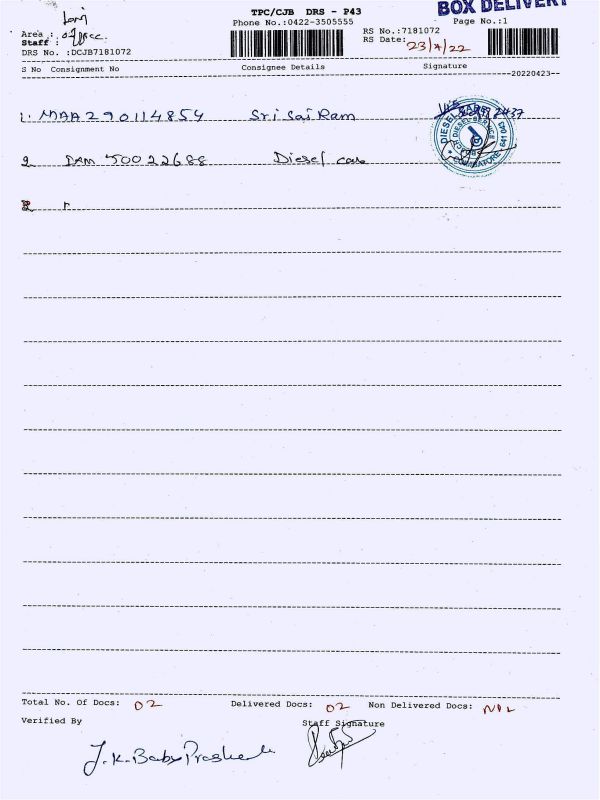 BOX DELIVERY
TPC/CJB DRS - P43
Phone No.:0422-3505555
Page No.:1
RS No.:7181072
RS Date: 23/4/22
Area : office
Staff :
DRS No. :DCJB7181072
S No Consignment No Consignee Details Signature
20220423
1. MAA290114854 Sri Sai Ram
2 DAM 50022688 Diesel care
DIESEL CARE
DIESEL SERVICE
COIMBATORE 641 043
Total No. Of Docs: 02 Delivered Docs: 02 Non Delivered Docs: NIL
Verified By Staff Signature
J.K. Baby